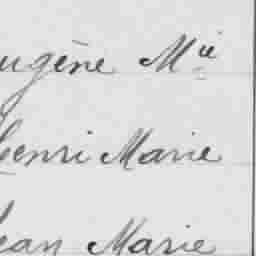 ugène Mie
Henri Marie
Jean Marie